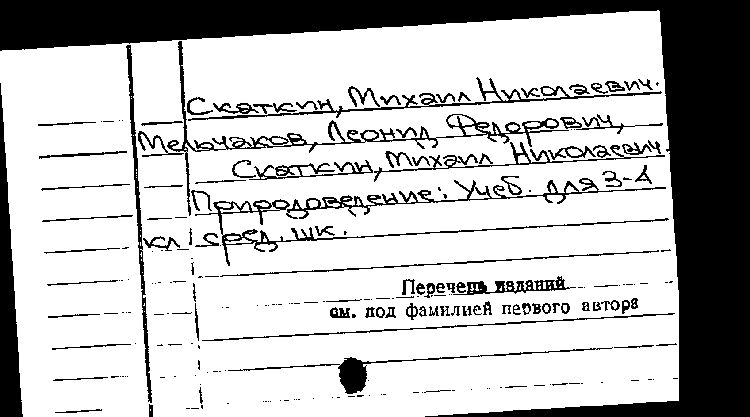 Скаткин, Михаил Николаевич.
Мельчаков, Леонид Федорович,
Скаткин, Михаил Николаевич.
Природоведение: Учеб. для 3-4
кл. сред. шк.
Перечень изданий
см. под фамилией первого автора